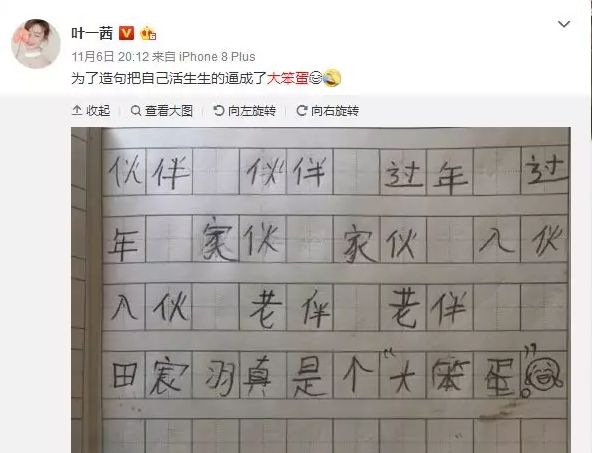 叶一茜
11月6日 20:12 来自 iPhone 8 Plus
为了造句把自己活生生的逼成了大笨蛋
收起 查看大图 向左旋转 向右旋转
伙伴 伙伴 过年 过
年 家伙 家伙 入伙
入伙 老伴 老伴
田宸羽真是个“大笨蛋”